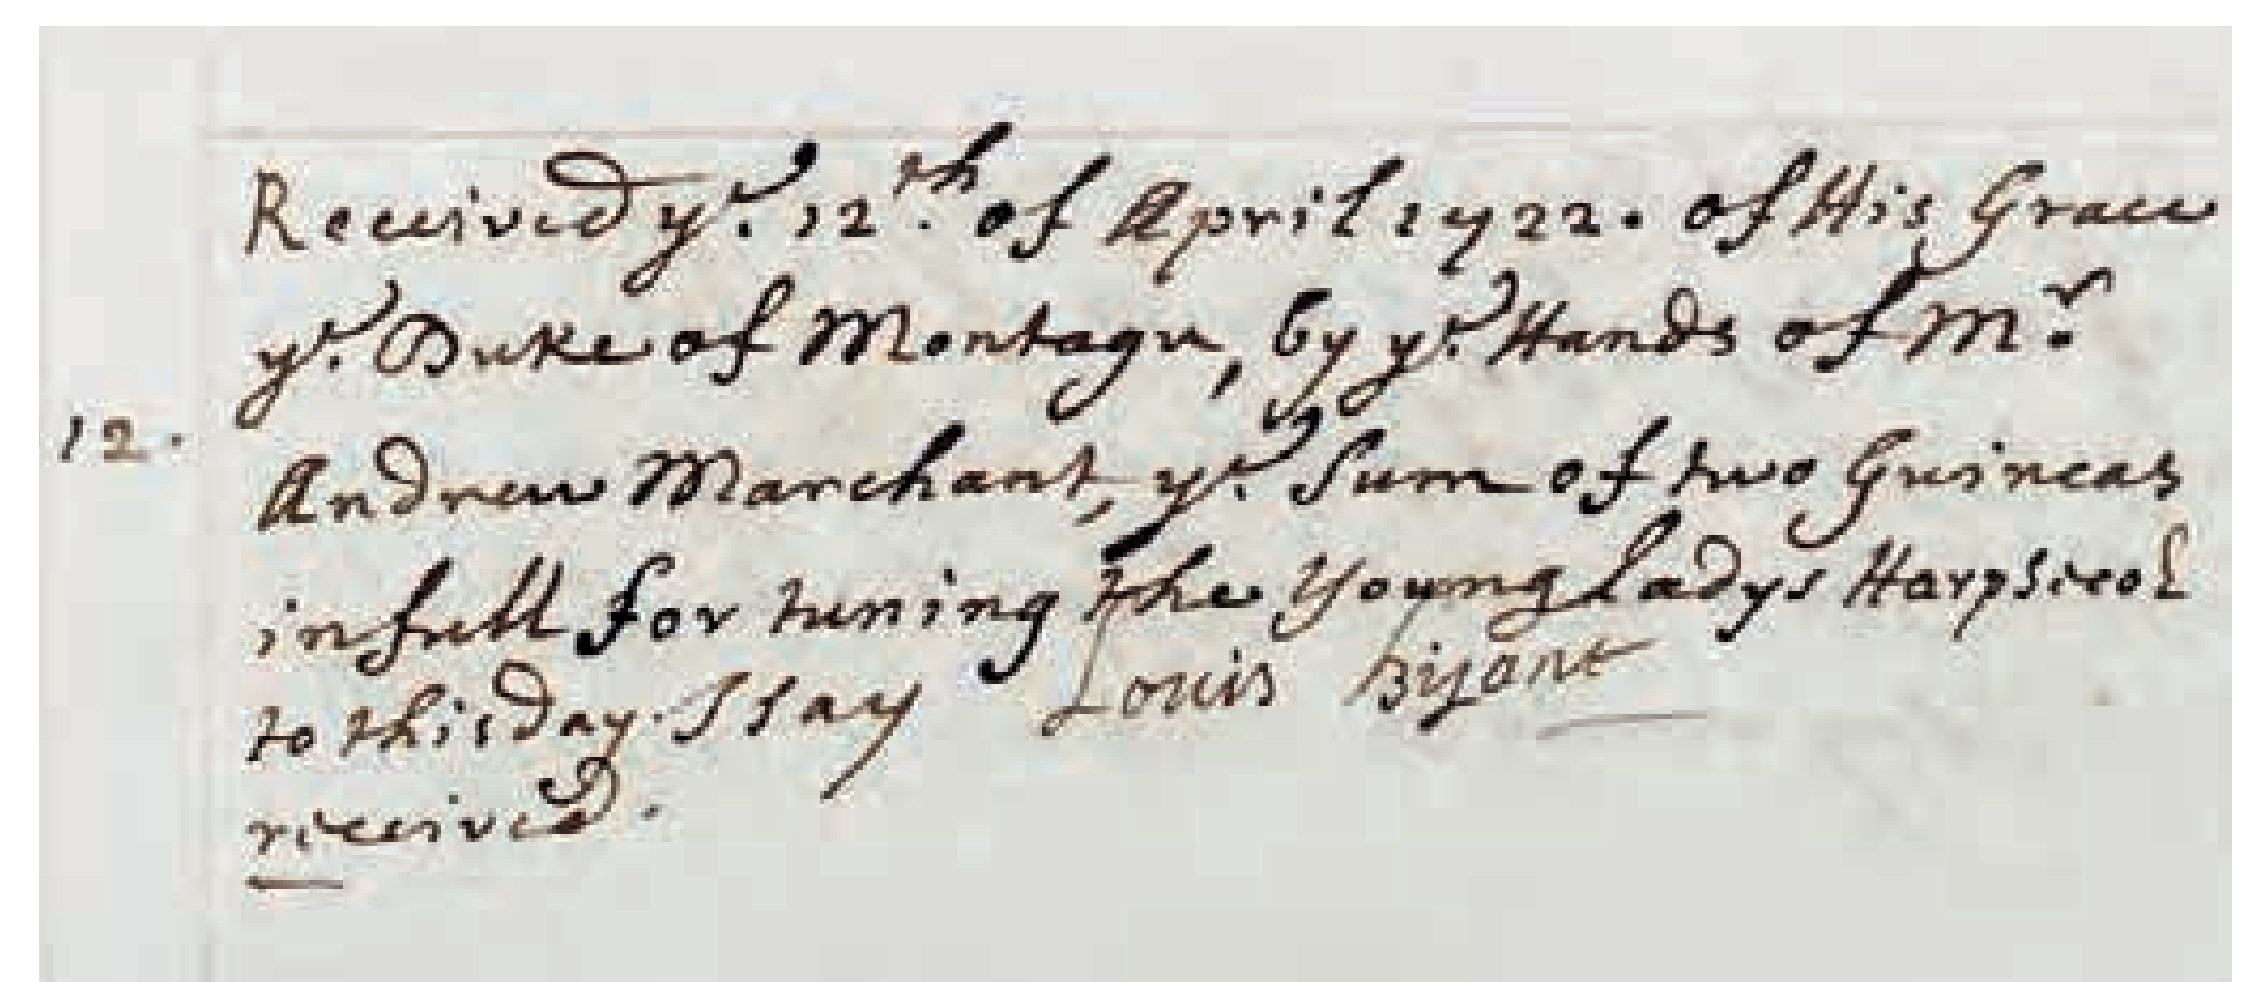 Received ye. 12.th of April 1722. of His Grace
ye. Duke of Montagu, by ye. Hands of Mr.
12.
Andrew Marchant, ye. Sum of two Guineas
in full for tuning the Young Ladys Harpsicol
to this day. I say Louis Bijant
received.